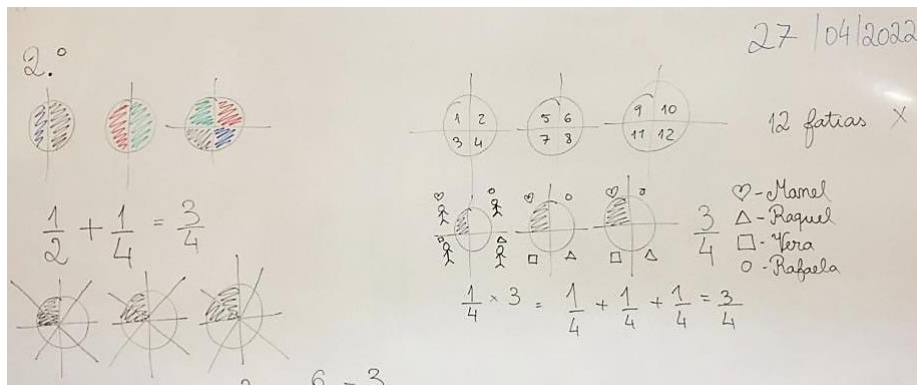 27/04/2022
2.º
1/2 + 1/4 = 3/4
1 2
3 4
5 6
7 8
9 10
11 12
12 fatias X
3/4
♡ - Manel
△ - Raquel
□ - Vera
○ - Rafaela
1/4 × 3 = 1/4 + 1/4 + 1/4 = 3/4
6 - 3